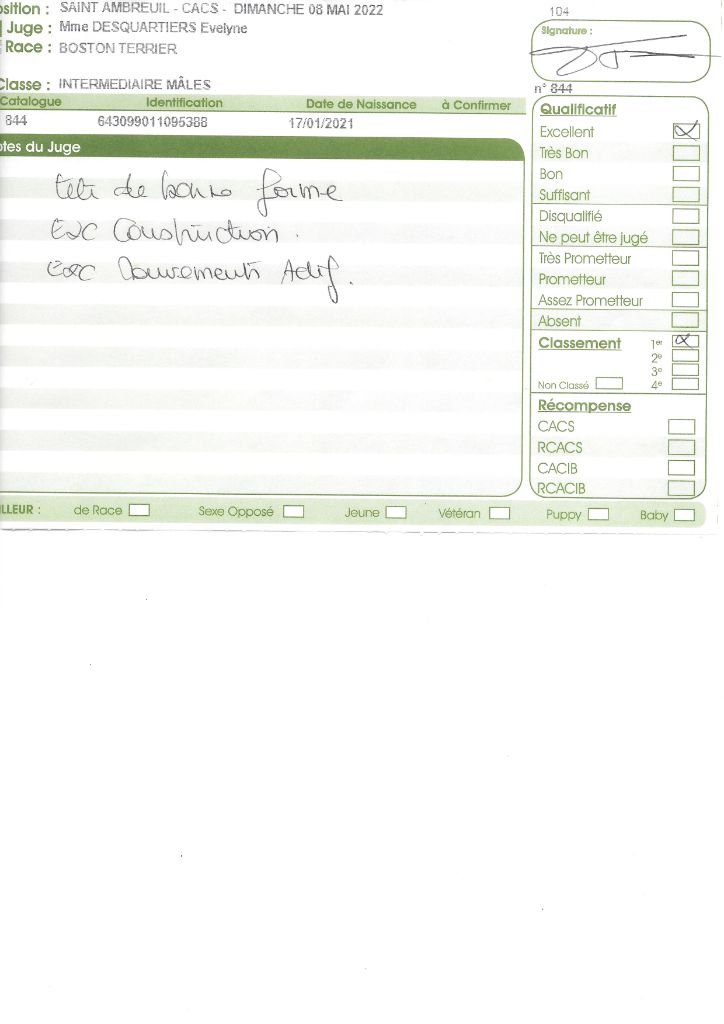 osition : SAINT AMBREUIL - CACS - DIMANCHE 08 MAI 2022
Juge : Mme DESQUARTIERS Evelyne
Race : BOSTON TERRIER
Classe : INTERMEDIAIRE MÂLES
Catalogue Identification Date de Naissance à Confirmer
844 643099011095388 17/01/2021
otes du Juge
tête de bonne forme
Exc Construction.
Exc Mouvements Actif.
104
Signature :
n° 844
Qualificatif
Excellent
Très Bon
Bon
Suffisant
Disqualifié
Ne peut être jugé
Très Prometteur
Prometteur
Assez Prometteur
Absent
Classement 1er
2e
3e
Non Classé 4e
Récompense
CACS
RCACS
CACIB
RCACIB
ILLEUR : de Race Sexe Opposé Jeune Vétéran Puppy Baby